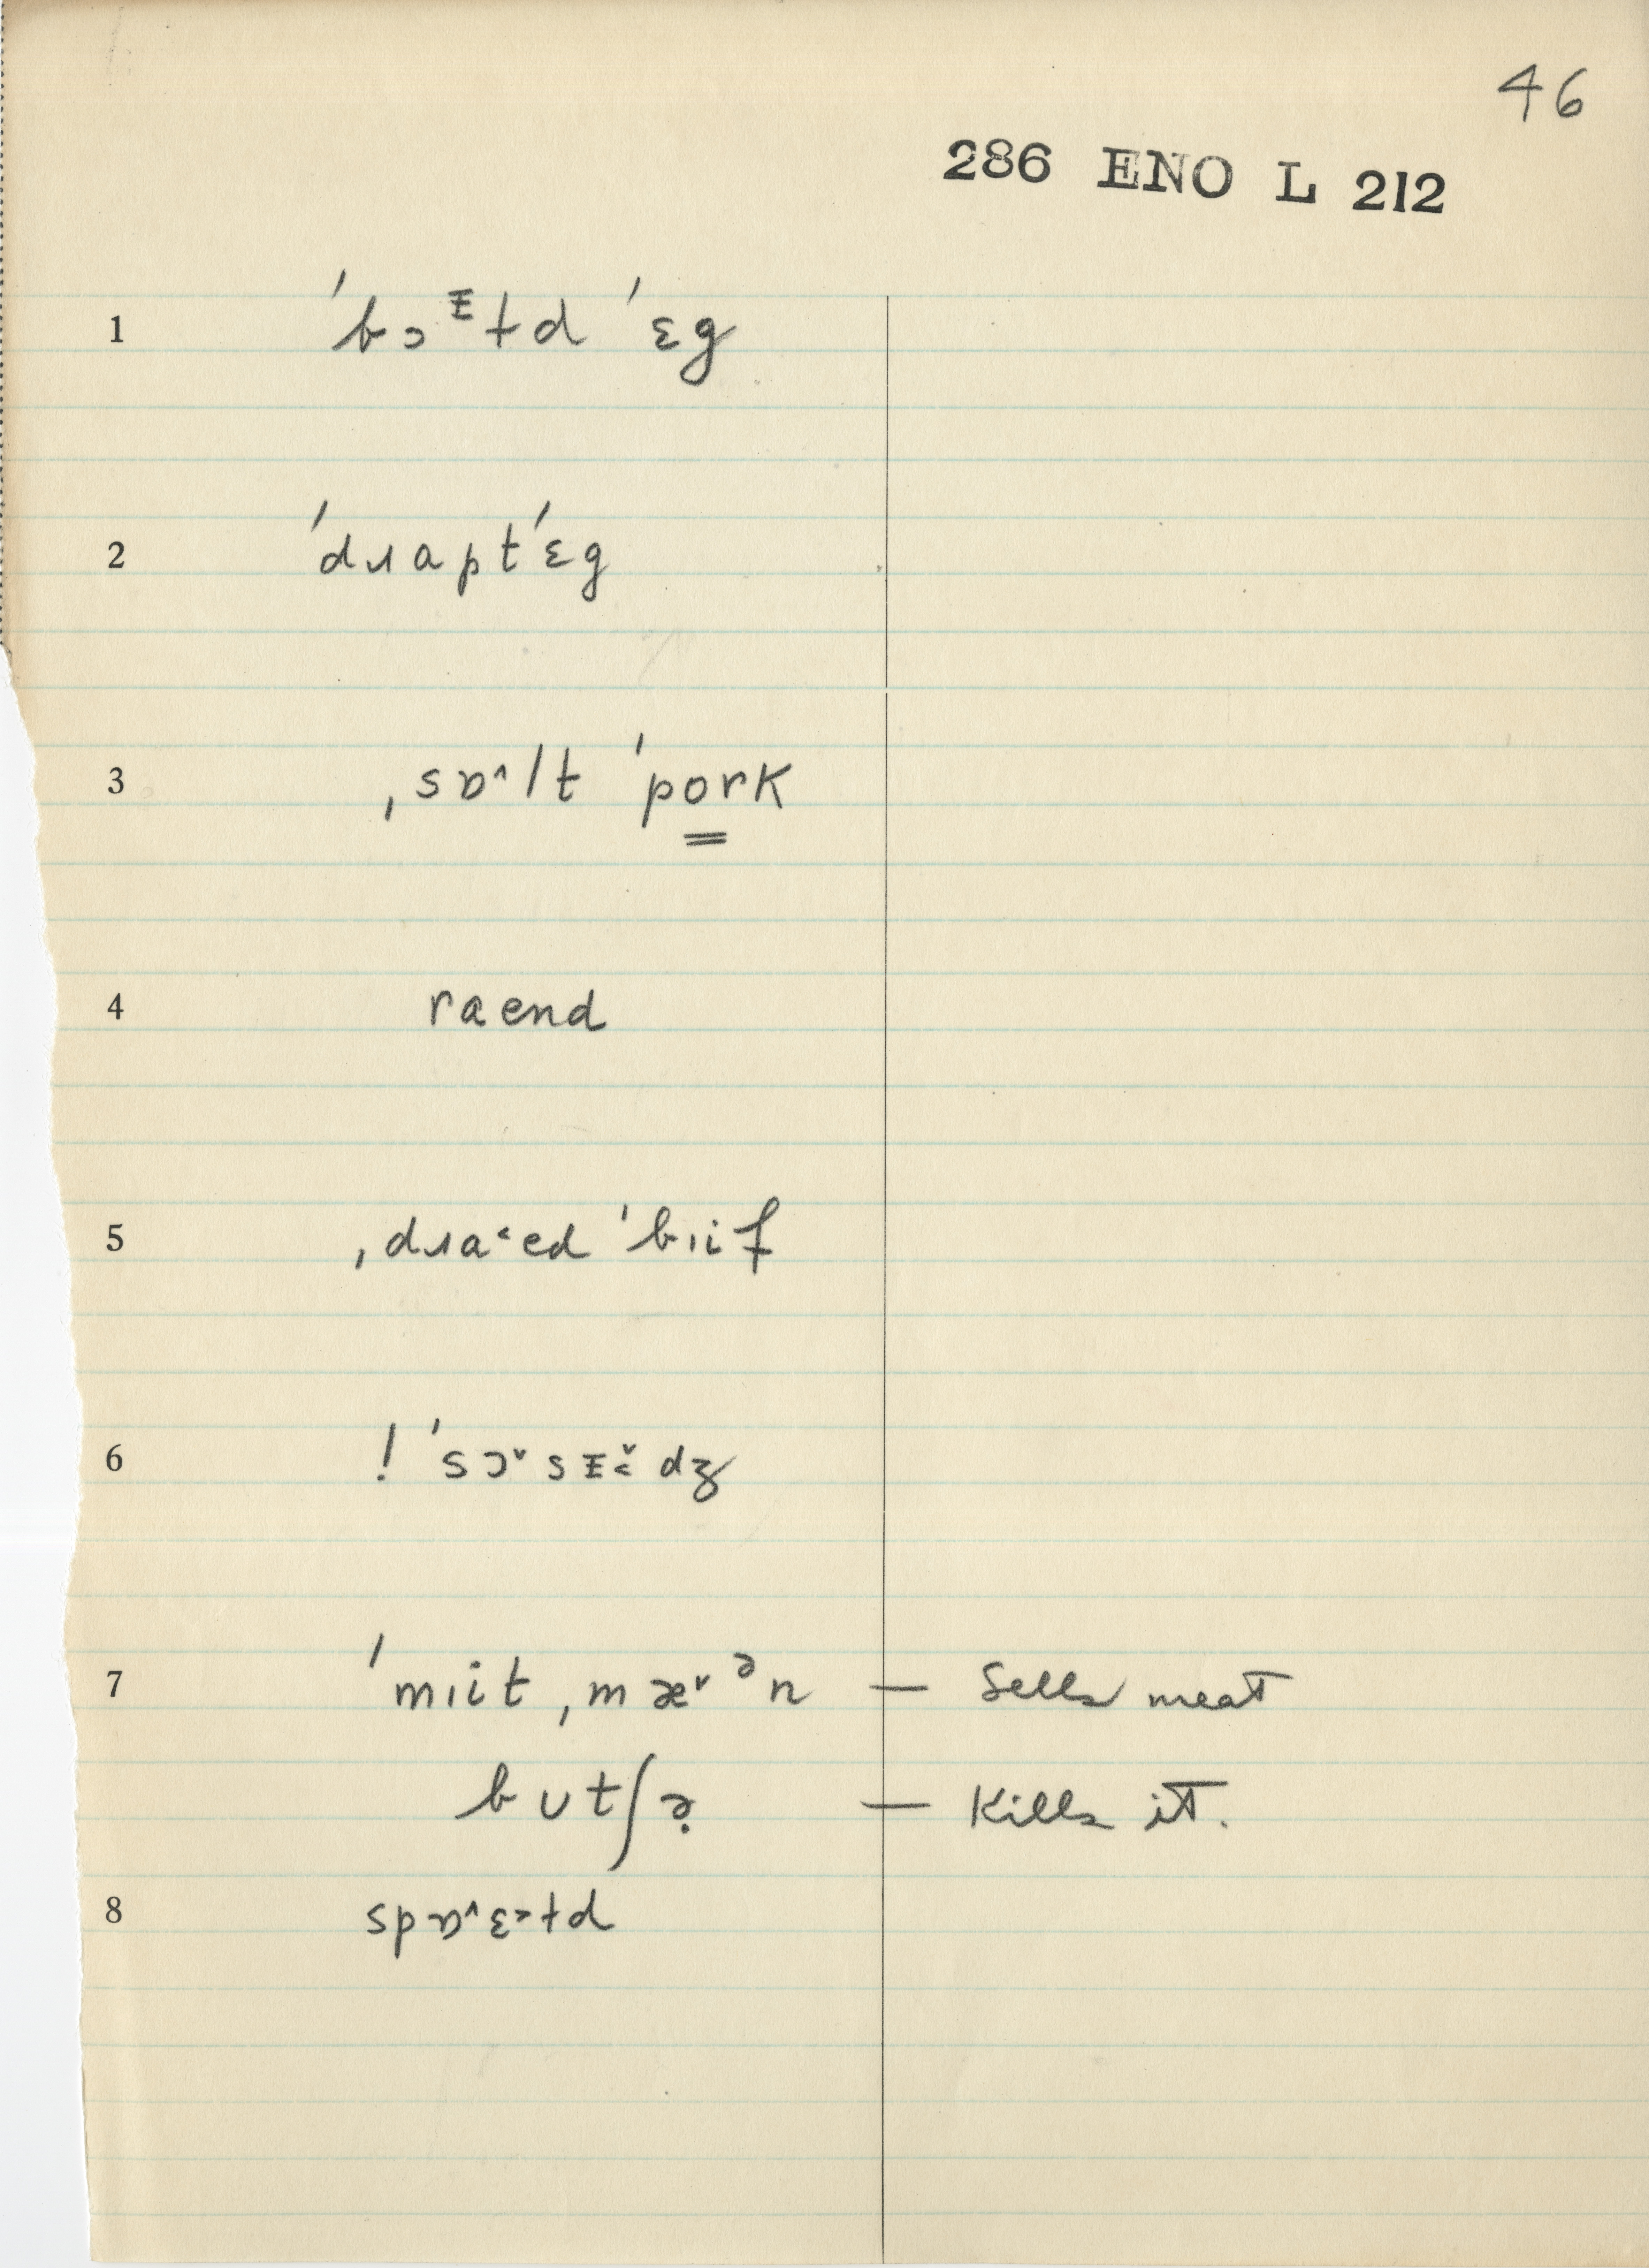 46
286 ENO L 212
1 ˈbɔᵻłd ˈɛg
2 ˈdɹapt ˈɛg
3 ˌsɒ˄lt ˈpork
4 raend
5 ˌdɹa˂ed ˈbɪif
6 ! ˈsɔ˅sᵻ̌˂dʒ
7 ˈmɪit ˌmæ˅ᵊn — Sells meat
bʊtʃə̣ — Kills it.
8 spɒ˄ɛ˃łd